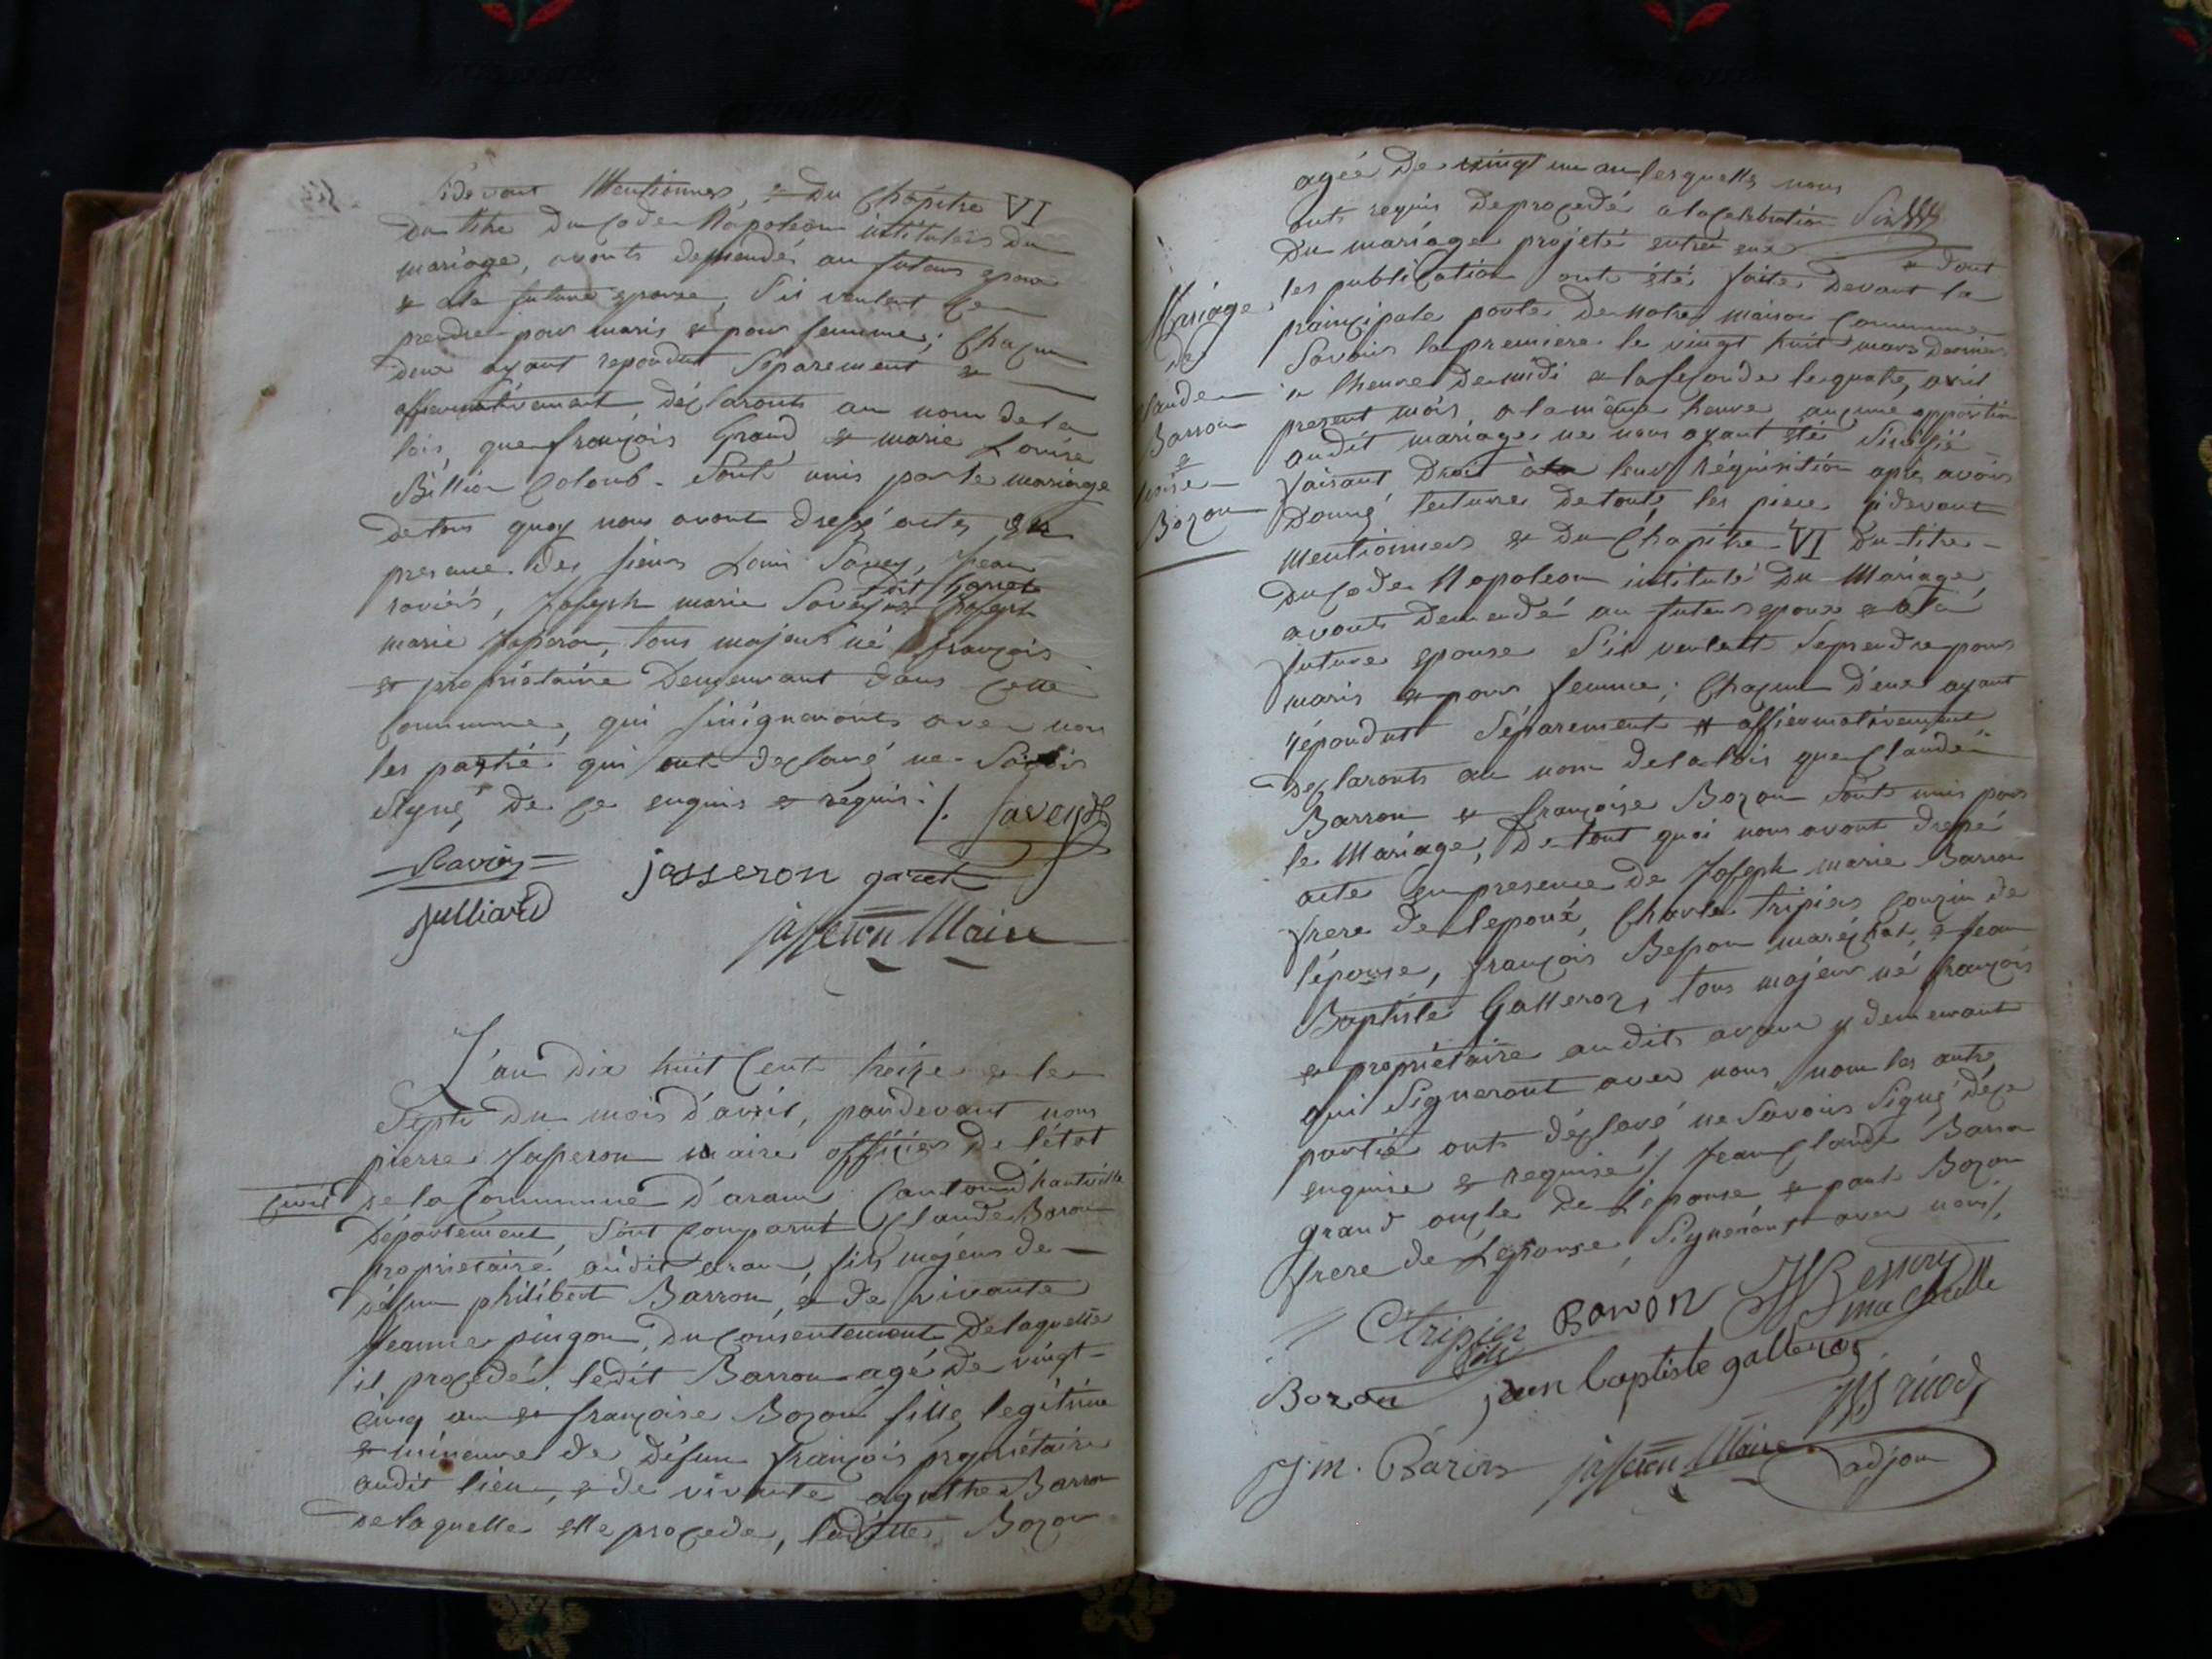 Cidevant Mentionnes, & du Chapitre VI
du titre du Code Napoleon intitulés du
mariage, avonts demendé au futurs epoux
& ala future epouse, S'il veulent ce
prendre pour maris & pour femme; Chacun
deux ayant repondut Séparement &
affirmativement, déclaronts au nom de la
lois, que françois Grand & marie Louise
Billion Colomb. Sont unis par le mariage
de tous quoy nous avont dressé actes en
presence des sieurs Louis Savey, Jean
raviér, Joseph marie Savey dit garret & Joseph
marie Jasseron, tous majeurs né françois
& propriétaire Demeurant dans Cette
Commune, qui signeronts avec nous
les partié qui ont declaré ne Savoir
signé, de ce enquis & requis.
L. Savey
Ravier
jasseron garet
Julliard
jasseron Maire
L'an dix huit Cent treize & le
Septe du mois d'avril, pardevant nous
pierre Jasseron maire officiers de l'état
Civil de la Commune d'aranc Canton d'hauteville
Département, Sont Comparut Claude Baron
propriétaire audit aran, fils majeurs de
défun philibert Barron, & de vivante
Jeanne pingon, du Consentement de laquelle
il procédé, ledit Barron agé de vingt
cinq an & françoise Bozon fille legitime
& mineure de défun françois propriétaire
audit lieu, & de vivante agathe Barron
de laquelle elle procede, laditte Bozon
agée de vingt un an lesquelles nous
onts requis de procedé a la Celebration
du mariage projeté entre eux & dont
Mariage
de
Claude
Barron
&
Bozon
les publication ont été faite devant la
principale porte de notre maison Commune
Savoir la premiere le vingt huit mars dernier
a lheure de midi & la seconde le quatre, avril
present mois, a la même heure, aucune opposition
audit mariage ne nous ayant été Sinifié
faisant droit à leurs réquisition apres avoir
donné lecture de toute les piece cidevant
Mentionnees & du Chapitre VI du titre
du Code Napoleon intitulé du Mariage
avonts demendé au futurs epoux & a la
future epouse S'il veulent Se prendre pour
maris & pour femme; Chacun d'eux ayant
répondut Séparement & affirmativement
declaronts au nom de la lois que Claude
Barron & françoise Bozon Sont unis par
le Mariage, De tout quoi nous avont dressé
acte en presence de Joseph marie Barron
frere de lepoux, Charle tripiers Couzin de
lépouse, françois Besson maréchal, & Jean
Baptiste Galleron, tous majeurs né françois
& propriétaire audit aranc y demeurant
qui Signeront avec nous, non les autre
partié onts déclaré ne Savoir Signé de ce
enquise & requise / Jean Claude Baron
grand oncle de l'épouse & paul Bozon
frere de Lepouse, Signeront avec nous /.
Ctripier
Baron
Bozon
jean baptiste galleron
J. m. Baron
jasseron Maire
adjoin